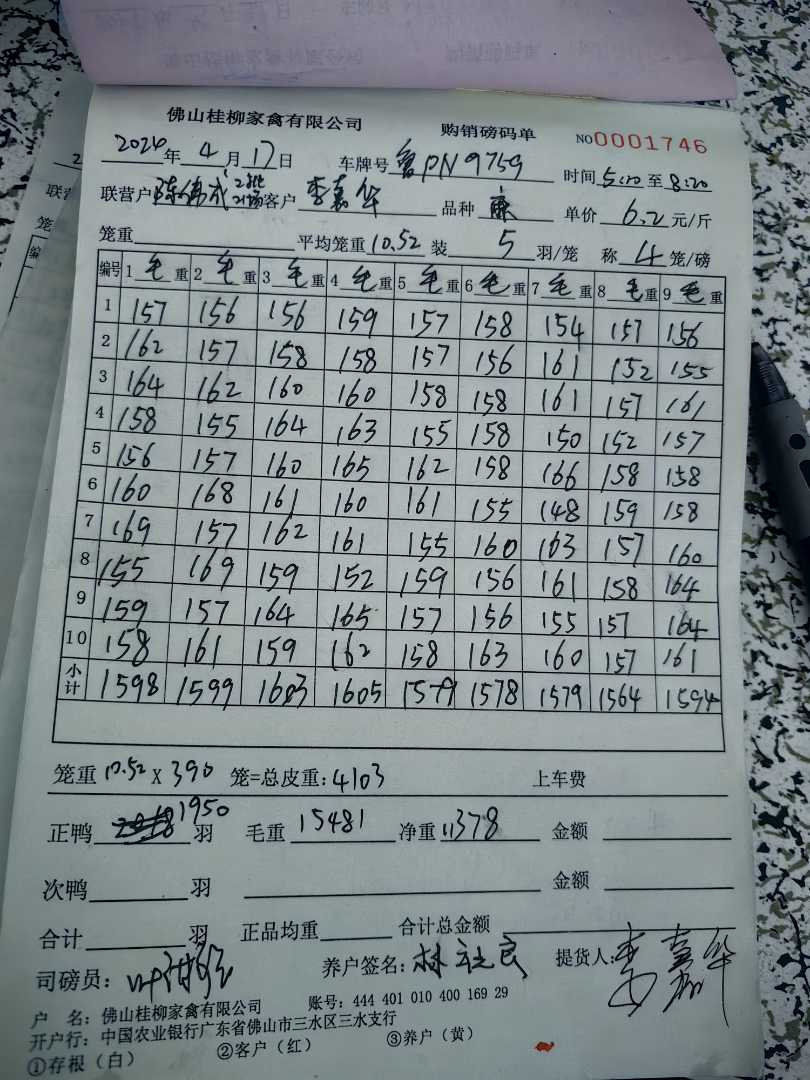 佛山桂柳家禽有限公司 购销磅码单 NO0001746
2026年 4月17日 车牌号 鲁PN9759 时间 5:20 至 8:20
联营户 陈伟武 客户 李嘉华 品种 单价 6.2 元/斤
笼重 平均笼重 10.52 装 5 羽/笼 称 4 笼/磅
编号 1 毛重 2 毛重 3 毛重 4 毛重 5 毛重 6 毛重 7 毛重 8 毛重 9 毛重
1 157 156 156 159 157 158 154 157 156
2 162 157 158 158 157 156 161 152 155
3 164 162 160 160 158 158 161 157 161
4 158 155 164 163 155 158 150 152 157
5 156 157 160 165 162 158 166 158 158
6 160 168 161 160 161 155 148 159 158
7 169 157 162 161 155 160 163 157 160
8 155 169 159 152 159 156 161 158 164
9 159 157 164 165 157 156 155 157 164
10 158 161 159 162 158 163 160 157 161
小计 1598 1599 1603 1605 1579 1578 1579 1564 1594
笼重 10.52 X 390 笼=总皮重: 4103 上车费
正鸭 1950 羽 毛重 15481 净重 11378 金额
次鸭 羽 金额
合计 羽 正品均重 合计总金额
司磅员: 养户签名: 林社良 提货人: 李嘉华
户 名: 佛山桂柳家禽有限公司 账号: 444 401 010 400 169 29
开户行: 中国农业银行广东省佛山市三水区三水支行
①存根（白） ②客户（红） ③养户（黄）